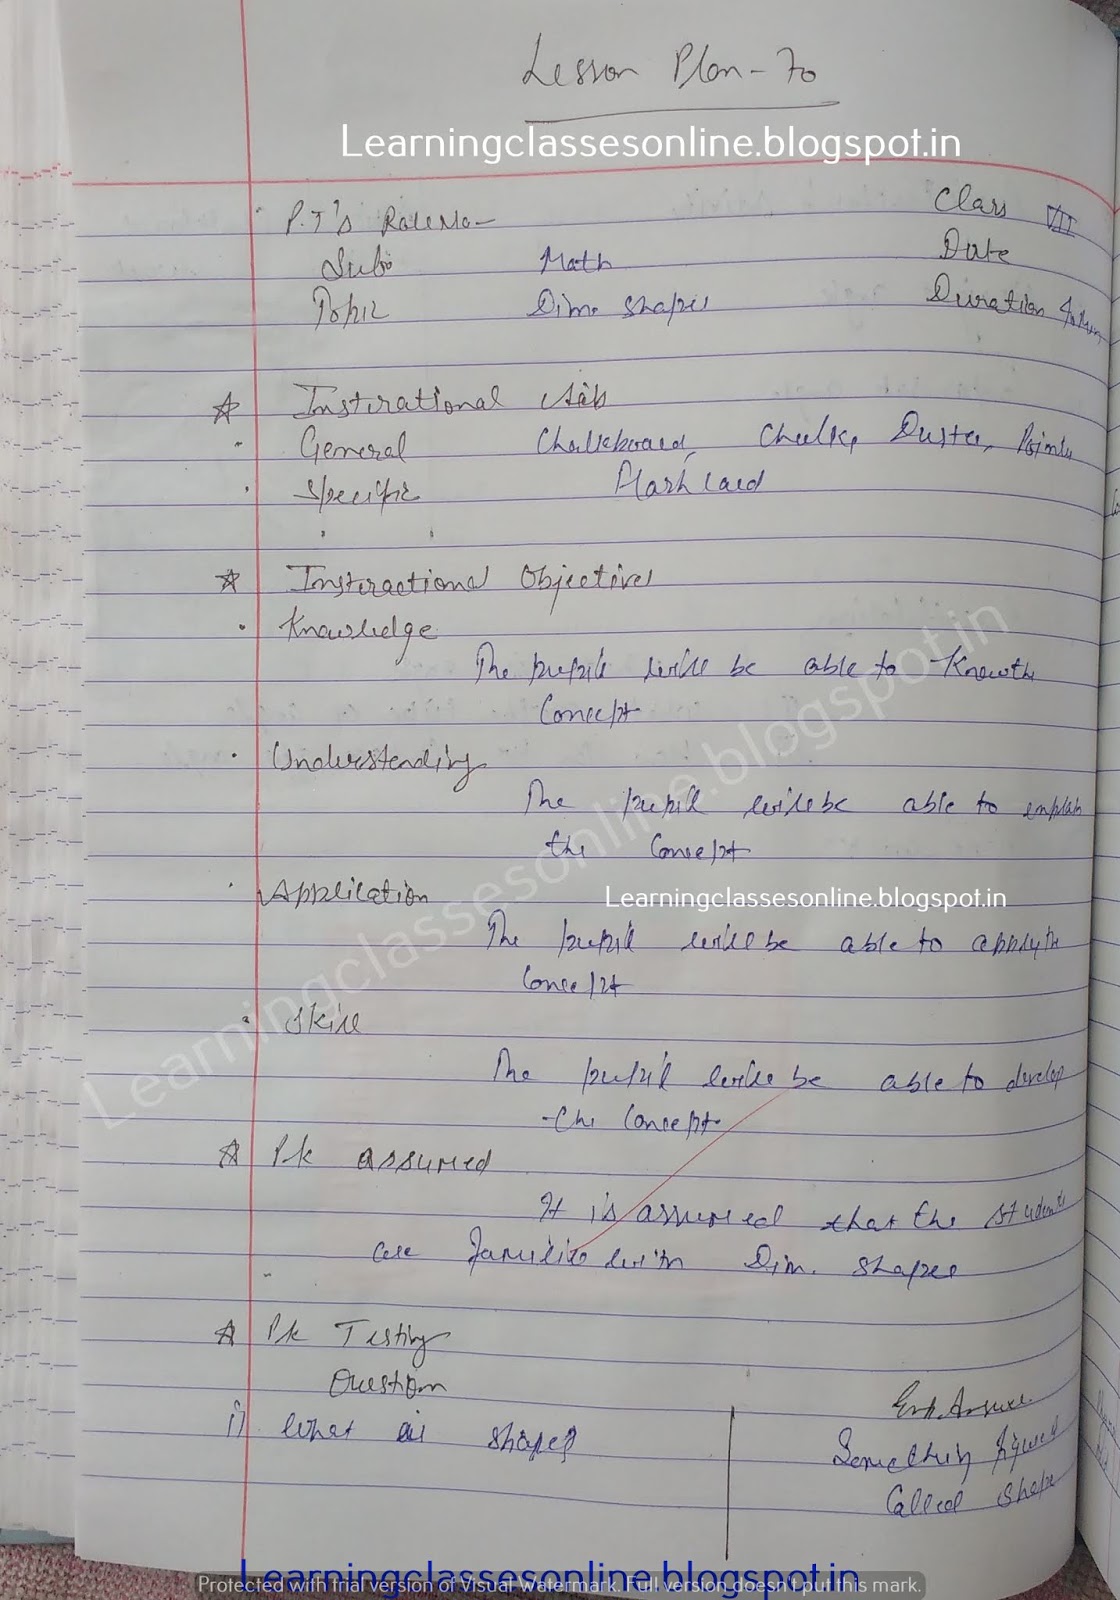 Lesson Plan - 70
Learningclassesonline.blogspot.in
P.T's RollNo - Class VII
Sub: Math Date
Topic Dim. shapes Duration
☆ Instirational Aids
General Chalkboard, Chalk, Duster, Pointer
Specific Flash Card
☆ Instiractional Objectives
Knowledge
The pupil will be able to know the
Concept
Understanding
The pupil will be able to explain
the Concept
Application
Learningclassesonline.blogspot.in
The pupil will be able to apply the
Concept
Skill
The pupil will be able to develop
the Concept
Learningclassesonline.blogspot.in
☆ Pk assumed
It is assumed that the students
are familiar with Dim. shapes
☆ Pk Testing
Question Exp. Answer
i) What is shape? Something figured
Called shape
Learningclassesonline.blogspot.in
Protected with trial version of Visual Watermark. Full version doesn't put this mark.